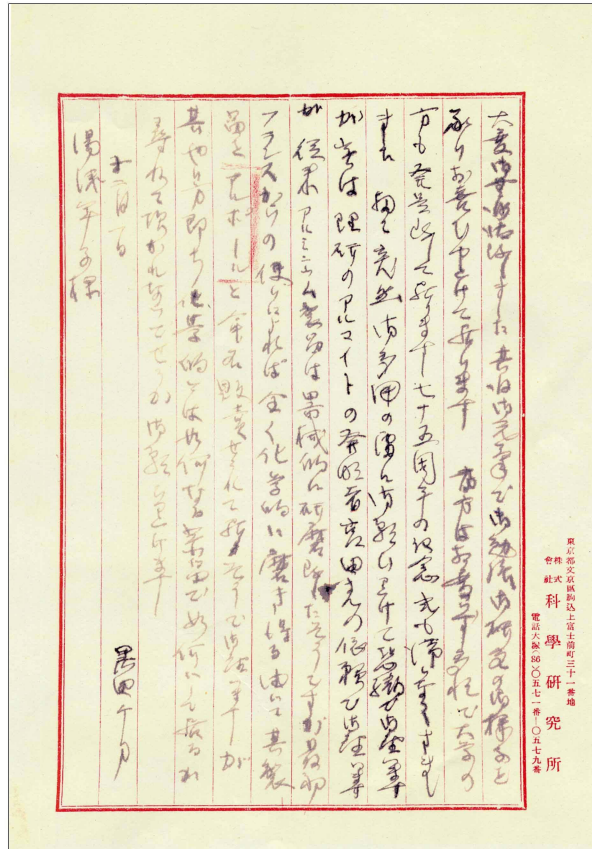 大変御無沙汰致しました 其後御元達で御勉強御研究の御様子を
承りお喜び申上げて居ります 当方はお蔭で大学の
方も発足致して居ります 七十五周年の記念式も滞りなくすませ
ました 扨て突然御多用の処御願い上げて恐縮で御座い
が 実は理研のアルマイトの発明者宮田先の依頼で御座い
が 従来アルミニューム製品は器械的に研磨致したそうですが最初
フランスからの便りによれば全く化学的に磨き得る由にて其製
品をアルポールと命名販売せられて居るそうで御座いますが
其やり方即ち化学的には如何なる薬品で如何にして居るか
尋ねて頂かれないでせうか御願い申上げます
十一月一日 黒田チカ
湯浅年子様
東京都文京區駒込上富士前町三十一番地
株式會社 科學研究所
電話大塚(86)〇五七一番-〇五七九番